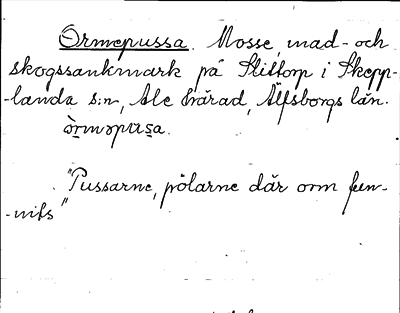 Ormepussa. Mosse, mad- och
skogssankmark på Slittorp i Skepp-
-landa s:n, Ale härad, Älfsborgs län.
òrməpusa.
"Pussarne, pölarne där orm fun-
-nits"